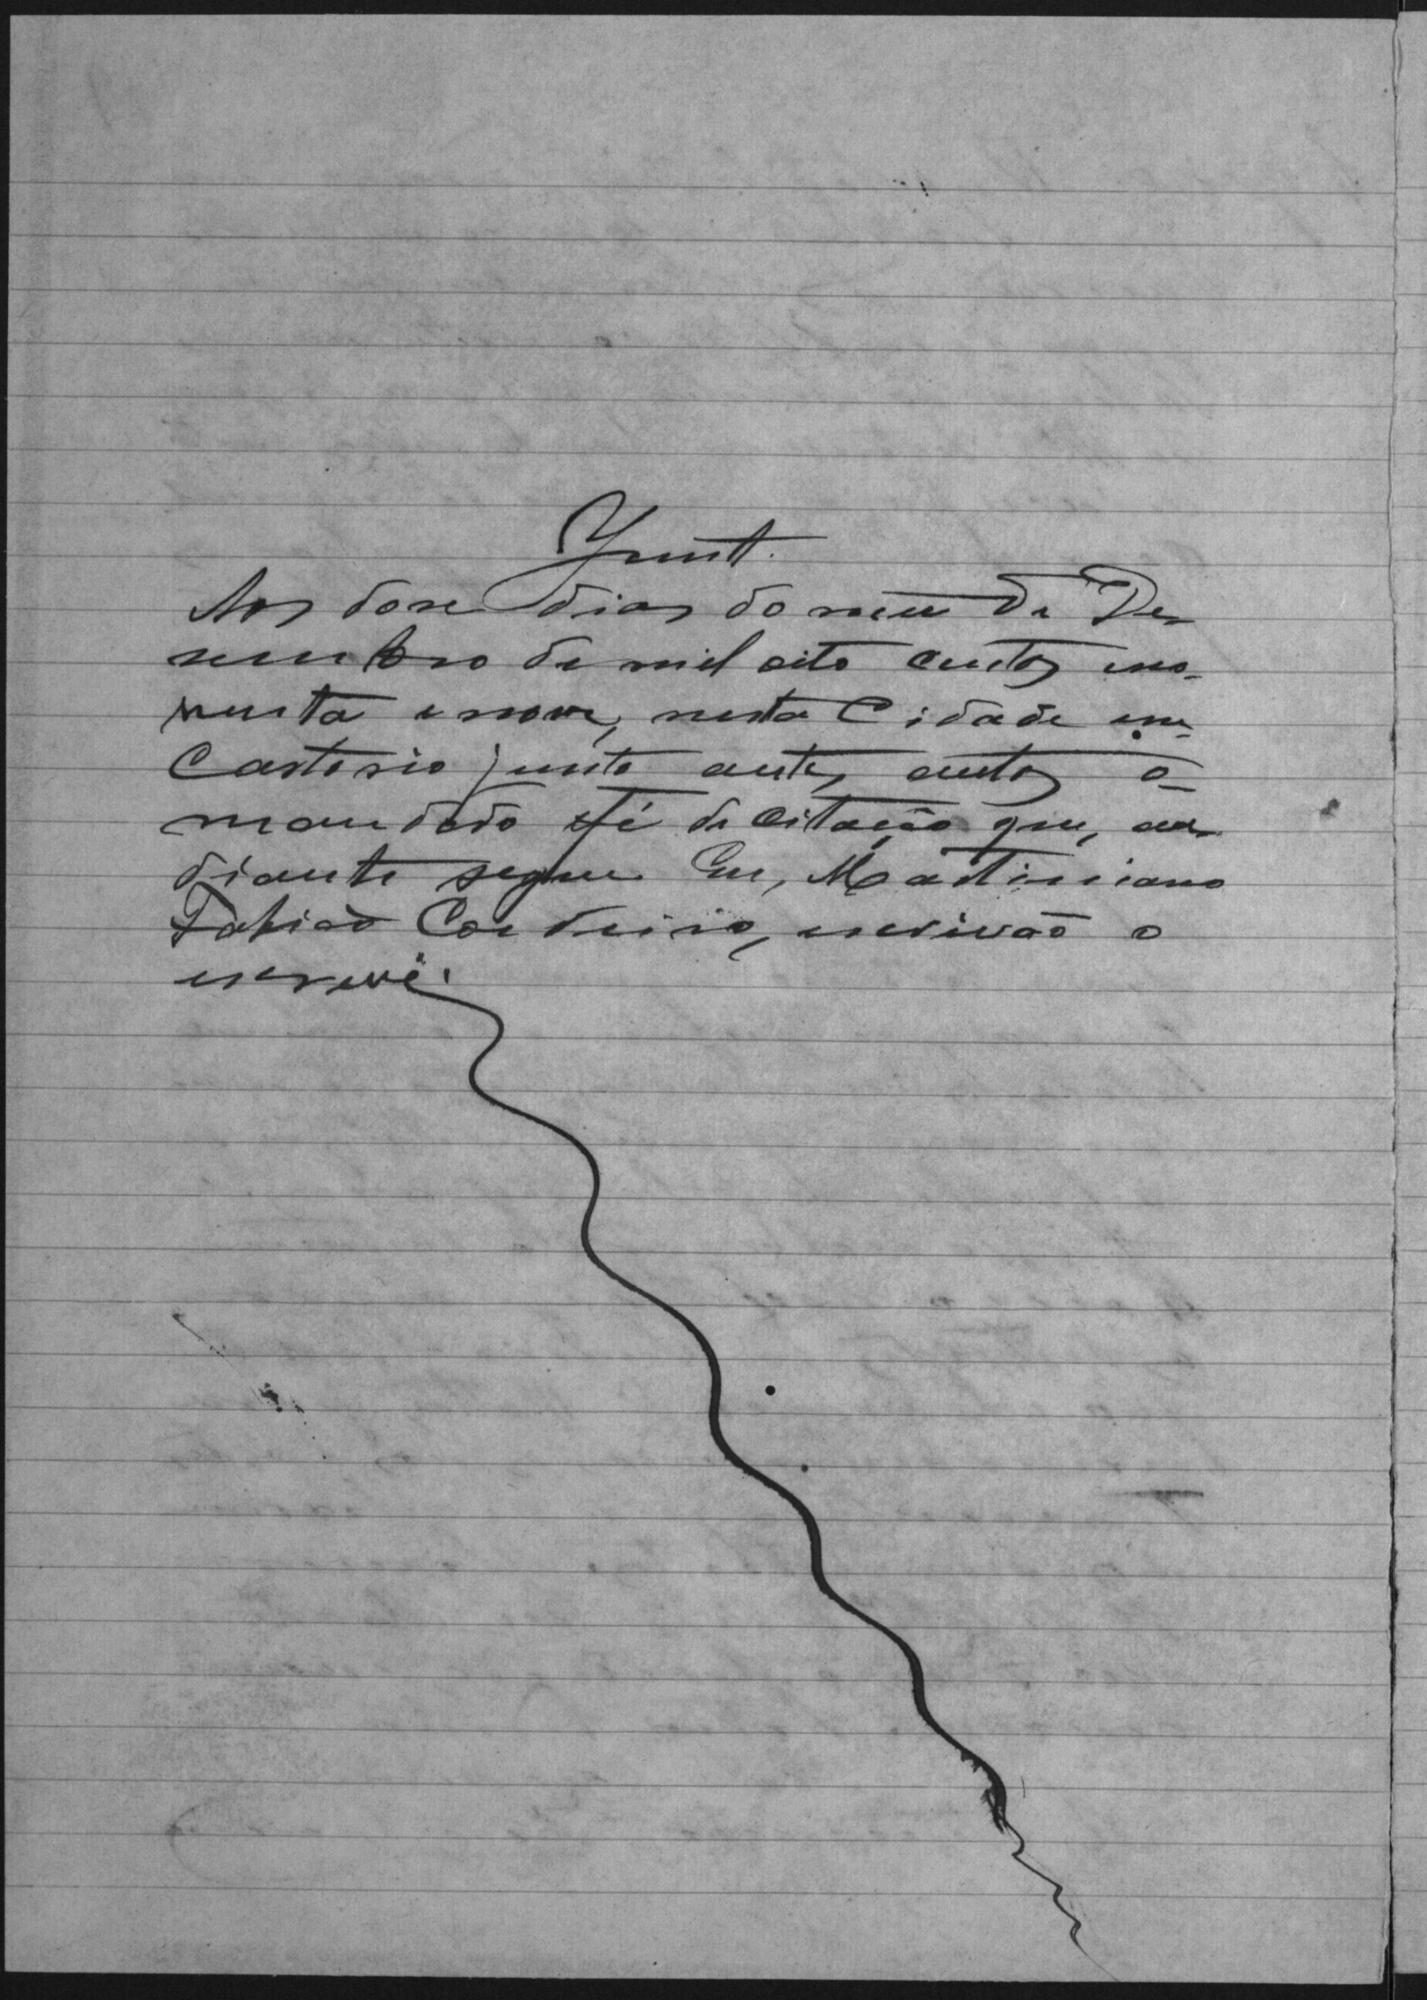 Junt.
Aos dose dias do mez de De
sembro de mil oito centos eno-
venta enove, nesta Cidade em
Cartorio junto aestes autos o
mandado e fé de citação que, ao
diante segue. Eu, Martiniano
Fabião Cordeiro, escrivão o
escrevi.